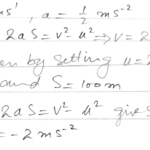 ms⁻¹, a = 1/2 ms⁻²
2aS = v² - u² ⇒ V = 2
en by setting u =
and S = 100m
2aS = v² - u² give
= -2 ms⁻²